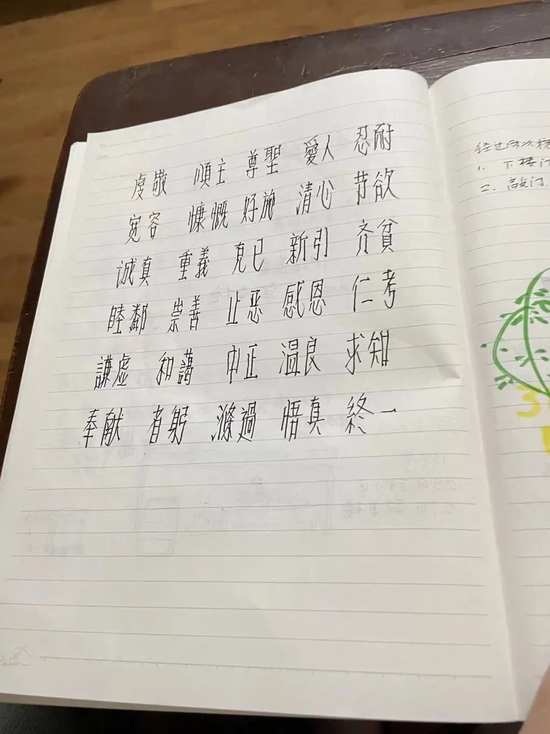 虔敬 順主 尊聖 愛人 忍耐
宽容 慷慨 好施 清心 节欲
诚真 重義 克已 新引 齐貧
睦鄰 崇善 止恶 感恩 仁考
謙虚 和謁 中正 温良 求知
奉献 者躬 滌過 悟真 終一
1. 下楼
二. 敲门